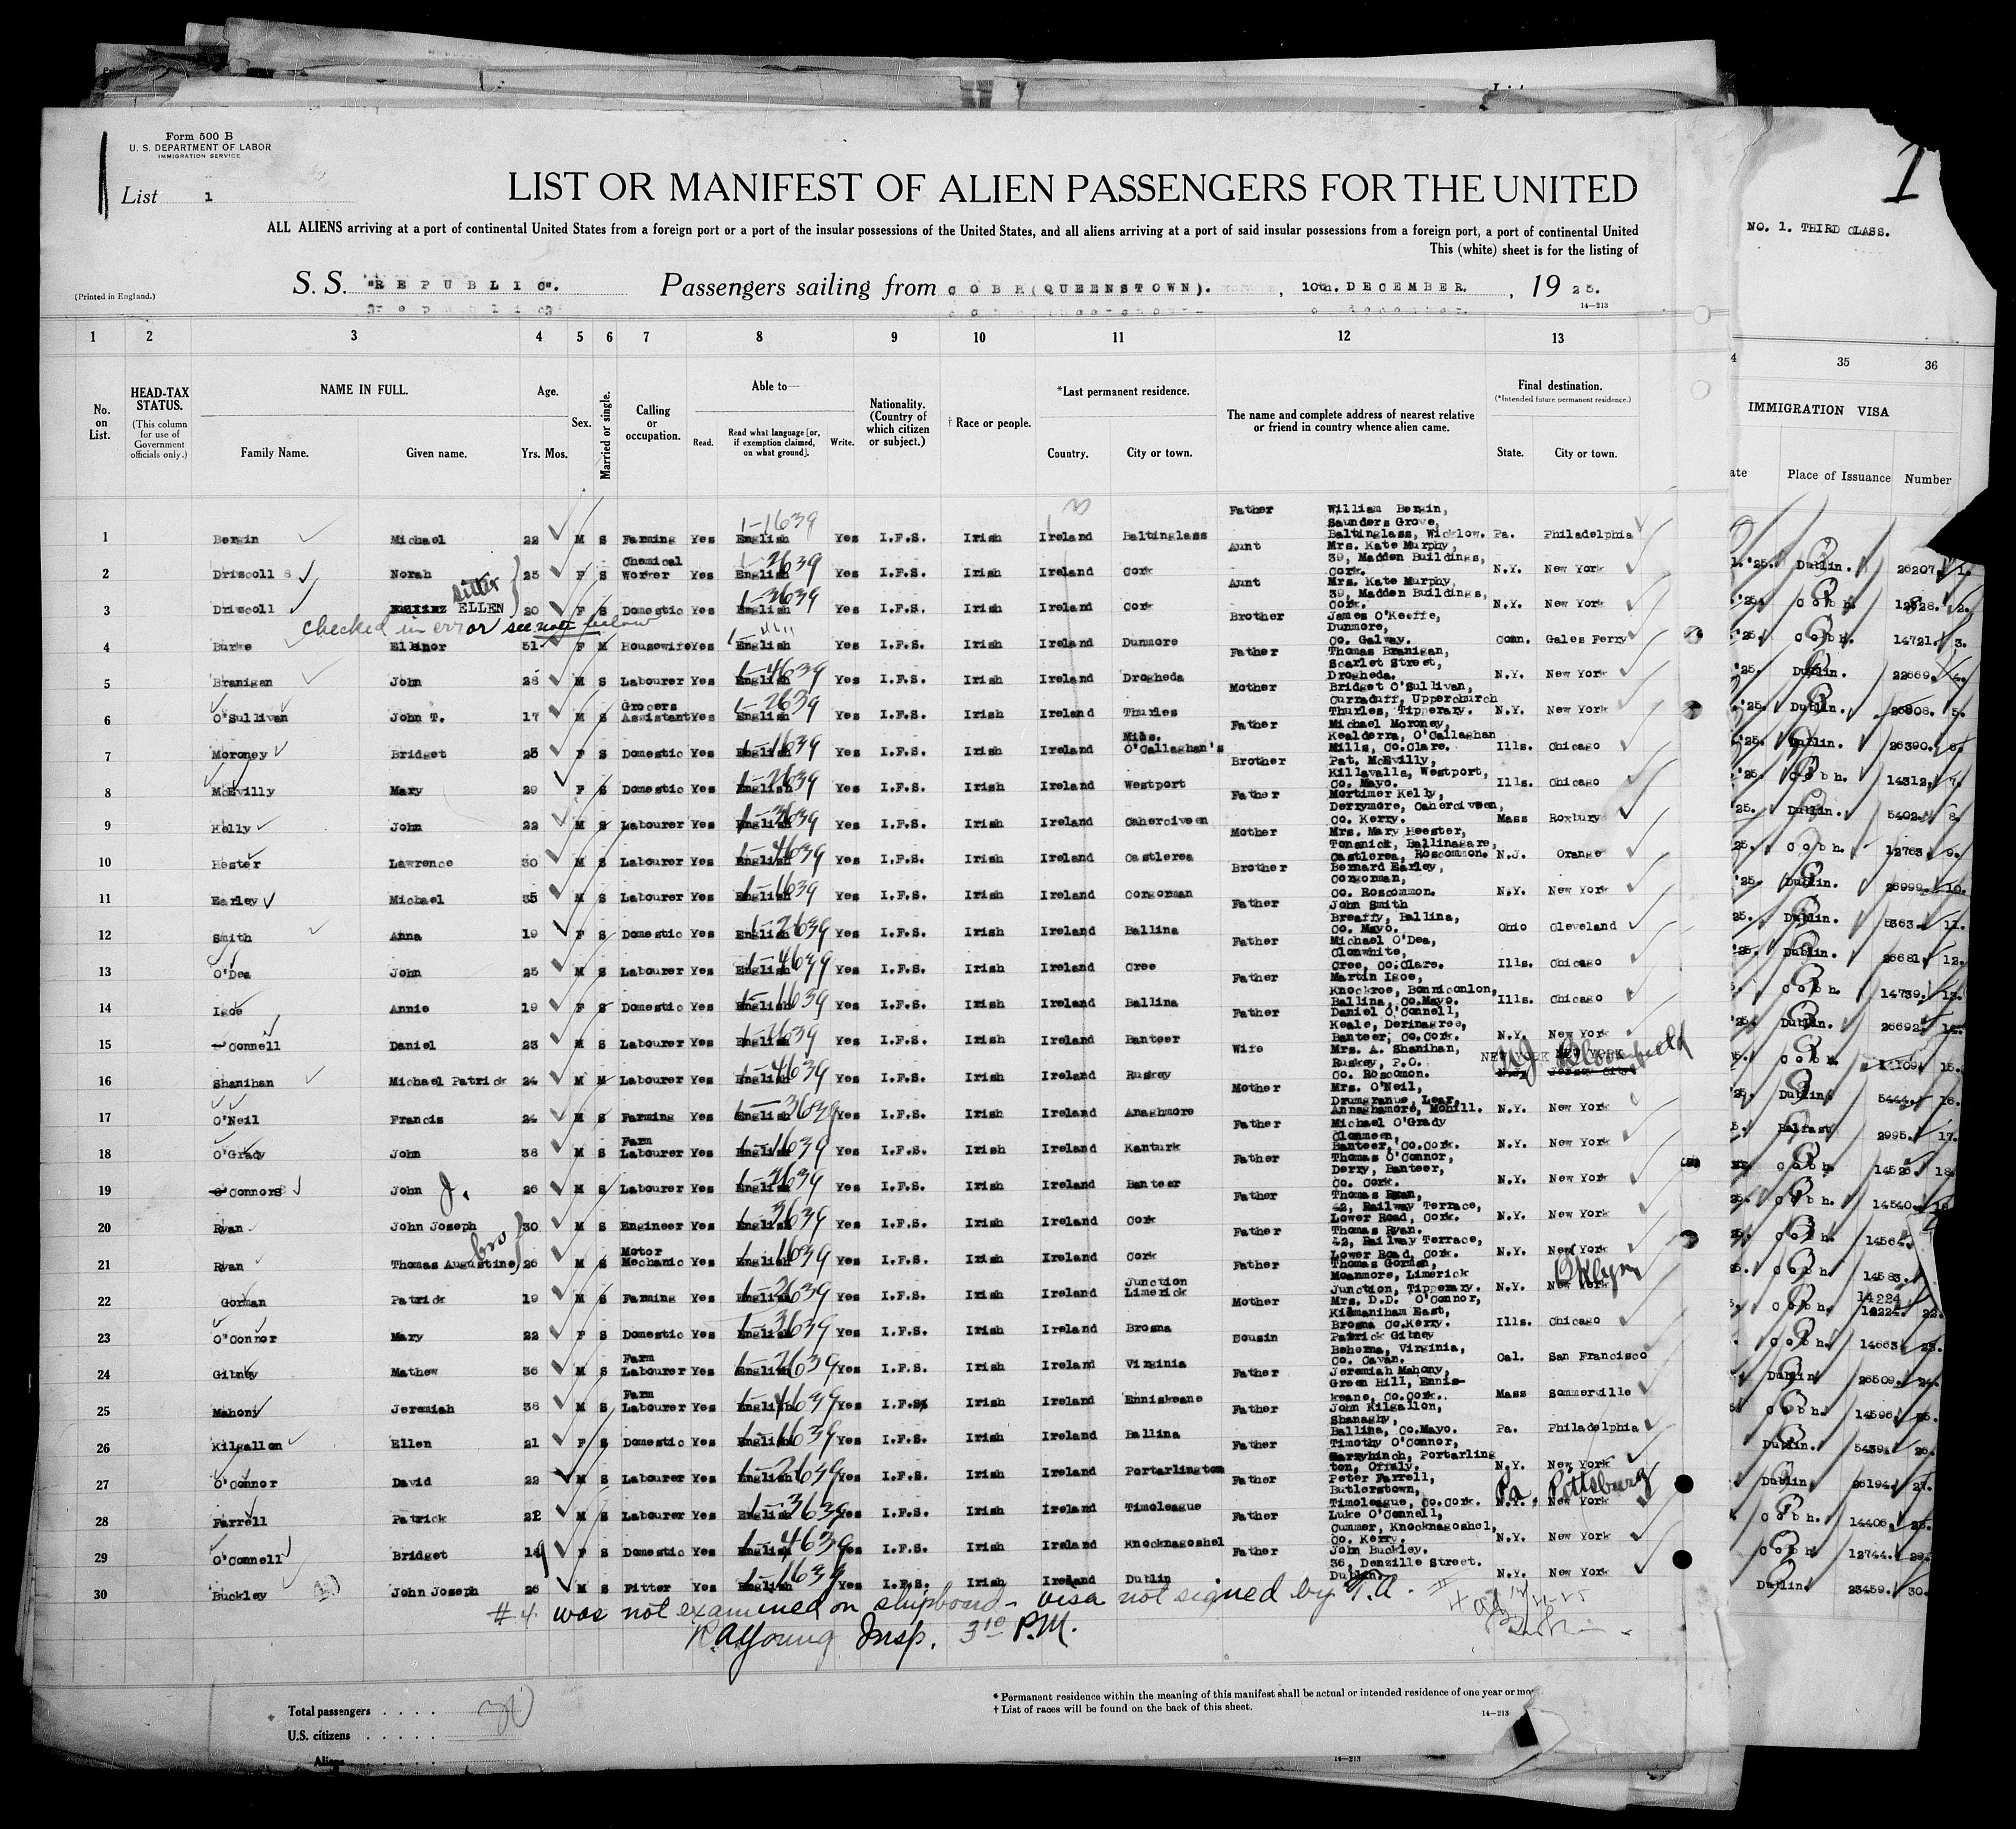 Form 500 B
U. S. DEPARTMENT OF LABOR
IMMIGRATION SERVICE
List 1
LIST OR MANIFEST OF ALIEN PASSENGERS FOR THE UNITED
ALL ALIENS arriving at a port of continental United States from a foreign port or a port of the insular possessions of the United States, and all aliens arriving at a port of said insular possessions from a foreign port, a port of continental United
This (white) sheet is for the listing of
(Printed in England.)
S. S. "REPUBLIC". Passengers sailing from COBH (QUEENSTOWN). , 10th. DECEMBER. , 19 25.
14—213
1
NO. 1. THIRD CLASS.
1 2 3 4 5 6 7 8 9 10 11 12 13
35 36
No. on List.
HEAD-TAX STATUS.
(This column for use of Government officials only.)
NAME IN FULL.
Family Name. Given name.
Age.
Yrs. Mos.
Sex.
Married or single.
Calling or occupation.
Able to—
Read. Read what language [or, if exemption claimed, on what ground]. Write.
Nationality. (Country of which citizen or subject.)
† Race or people.
*Last permanent residence.
Country. City or town.
The name and complete address of nearest relative or friend in country whence alien came.
Final destination.
(*Intended future permanent residence.)
State. City or town.
IMMIGRATION VISA
Place of Issuance Number
1 Bergin Michael 22 M S Farming Yes English Yes I.F.S. Irish Ireland Baltinglass Father William Bergin, Saunders Grove, Baltinglass, Wicklow. Pa. Philadelphia
2 Driscoll Norah 25 F S Chemical Worker Yes English Yes I.F.S. Irish Ireland Cork Aunt Mrs. Kate Murphy, 39, Madden Buildings, Cork. N.Y. New York
sister
3 Driscoll ELLEN 20 F S Domestic Yes English Yes I.F.S. Irish Ireland Cork Aunt Mrs. Kate Murphy, 39, Madden Buildings, Cork. N.Y. New York
checked in error see note below
4 Burke Ellinor 51 F M Housewife Yes English Yes I.F.S. Irish Ireland Dunmore Brother James O'Keeffe, Dunmore, Co. Galway. Conn. Gales Ferry
5 Branigan John 28 M S Labourer Yes English Yes I.F.S. Irish Ireland Drogheda Father Thomas Branigan, Scarlet Street, Drogheda. N.Y. New York
6 O'Sullivan John T. 17 M S Grocers Assistant Yes English Yes I.F.S. Irish Ireland Thurles Mother Bridget O'Sullivan, Curraduff, Upperchurch Thurles, Tipperary. N.Y. New York
7 Moroney Bridget 25 F S Domestic Yes English Yes I.F.S. Irish Ireland O'Callaghan's Mills. Father Michael Moroney, Kealderra, O'Callaghan Mills, Co.Clare. Ills. Chicago
8 McEvilly Mary 29 F S Domestic Yes English Yes I.F.S. Irish Ireland Westport Brother Pat. McEvilly, Killavalla, Westport, Co. Mayo. Ills. Chicago
9 Kelly John 22 M S Labourer Yes English Yes I.F.S. Irish Ireland Caherciveen Father Mortimer Kelly, Derrymore, Caherciveen, Co. Kerry. Mass Roxbury
10 Hester Lawrence 30 M S Labourer Yes English Yes I.F.S. Irish Ireland Castlerea Mother Mrs. Mary Heester, Tonsnick, Ballinagare, Castlerea, Roscommon. N.J. Orange
11 Earley Michael 35 M S Labourer Yes English Yes I.F.S. Irish Ireland Corgorman Brother Bernard Earley, Corgorman, Co. Roscommon. N.Y. New York
12 Smith Anna 19 F S Domestic Yes English Yes I.F.S. Irish Ireland Ballina Father John Smith Breaffy, Ballina, Co. Mayo. Ohio Cleveland
13 O'Dea John 25 M S Labourer Yes English Yes I.F.S. Irish Ireland Cree Father Michael O'Dea, Clonwhite, Cree, Co.Clare. Ills. Chicago
14 Igoe Annie 19 F S Domestic Yes English Yes I.F.S. Irish Ireland Ballina Father Martin Igoe, Knockroe, Bonniconlon, Ballina, Co.Mayo. Ills. Chicago
15 Connell Daniel 23 M S Labourer Yes English Yes I.F.S. Irish Ireland Banteer Father Daniel O'Connell, Keale, Derinagree, Banteer, Co.Cork. N.Y. New York
16 Shanihan Michael Patrick 24 M M Labourer Yes English Yes I.F.S. Irish Ireland Ruskey Wife Mrs. A. Shanihan, Ruskey, P.O. Co. Roscomon. NEW YORK NEW YORK N.J. Jersey City NJ Bloomfield
17 O'Neil Francis 24 M S Farming Yes English Yes I.F.S. Irish Ireland Anaghmore Mother Mrs. O'Neil, Drumgranue, Lear, Annaghamore, Mohill. N.Y. New York
18 O'Grady John 38 M S Farm Labourer Yes English Yes I.F.S. Irish Ireland Kanturk Father Michael O'Grady Clonmeen, Banteer, Co.Cork. N.Y. New York
19 O'Connors John J. 26 M S Labourer Yes English Yes I.F.S. Irish Ireland Banteer Father Thomas O'Connor, Derry, Banteer, Co. Cork. N.Y. New York
20 Ryan John Joseph 30 M S Engineer Yes English Yes I.F.S. Irish Ireland Cork Father Thomas Ryan, 42, Railway Terrace, Lower Road, Cork. N.Y. New York
bro
21 Ryan Thomas Augustine 26 M S Motor Mechanic Yes English Yes I.F.S. Irish Ireland Cork Father Thomas Ryan. 42, Railway Terrace, Lower Road, Cork. N.Y. New York
22 Gorman Patrick 19 M S Farming Yes English Yes I.F.S. Irish Ireland Junction Limerick Father Thomas Gorman, Moanmore, Limerick Junction, Tipperary. N.Y. New York Bklyn
23 O'Connor Mary 22 F S Domestic Yes English Yes I.F.S. Irish Ireland Brosna Mother Mrs. D.D. O'Connor, Kilmaniham East, Brosna Co.Kerry. Ills. Chicago
24 Gilney Mathew 36 M S Farm Labourer Yes English Yes I.F.S. Irish Ireland Virginia Cousin Patrick Gilney Behorna, Virginia, Co. Cavan. Cal. San Francisco
25 Mahony Jeremiah 38 M S Farm Labourer Yes English Yes I.F.S. Irish Ireland Enniskeane Father Jeremiah Mahony, Green Hill, Ennis-keane, Co.Cork. Mass Sommerville
26 Kilgallon Ellen 21 F S Domestic Yes English Yes I.F.S. Irish Ireland Ballina Father John Kilgallon, Shanaghy, Ballina, Co.Mayo. Pa. Philadelphia
27 O'Connor David 22 M S Labourer Yes English Yes I.F.S. Irish Ireland Portarlington Father Timothy O'Connor, Garryhinch, Portarling ton, Offaly. N.Y. New York
28 Farrell Patrick 22 M S Labourer Yes English Yes I.F.S. Irish Ireland Timoleague Father Peter Farrell, Butlerstown, Timoleague, Co.Cork. N.Y. New York Pa Pittsburg
29 O'Connell Bridget 18 F S Domestic Yes English Yes I.F.S. Irish Ireland Knocknagoshel Father Luke O'Connell, Cummer, Knocknagoshel, Co. Kerry. N.Y. New York
30 Buckley John Joseph 26 M S Fitter Yes English Yes I.F.S. Irish Ireland Dublin Father John Buckley. 36, Denzille Street. Dublin. N.Y. New York
'25. Dublin. 26207. 1.
Cobh. 2.
'25. Cobh. 14721. 3.
'25. Dublin. 22669. 4.
'25. Dublin. 26808. 5.
'25. Dublin. 26390. 6.
'25. Cobh. 14312. 7.
25. Dublin. 5402. 8.
25. Cobh. 12763. 9.
'25. Dublin. 26999. 10.
25. Dublin. 5363. 11.
'25. Dublin. 26681. 12.
Cobh. 14739. 13.
Dublin. 26692. 14.
Cobh. 15.
Dublin. 5444. 16.
Belfast 2995. 17.
Cobh. 14526. 18.
Cobh. 14540. 19.
Cobh. 14564.
Cobh. 14583.
Cobh. 14224 22.
Cobh. 14663. 23.
Dublin 26509. 24.
Cobh. 14596. 25.
Dublin. 5439. 26.
Dublin. 26194. 27.
Cobh. 14406. 28.
Cobh. 12744. 29.
Dublin. 23459. 30.
#4 was not examined on shipboard - visa not signed by T.A.
R.A. Young Insp. 3 10 P.M.
Total passengers . . . .
U.S. citizens . . . . .
Aliens . . . . .
* Permanent residence within the meaning of this manifest shall be actual or intended residence of one year or mo
† List of races will be found on the back of this sheet.
14—213
14—213